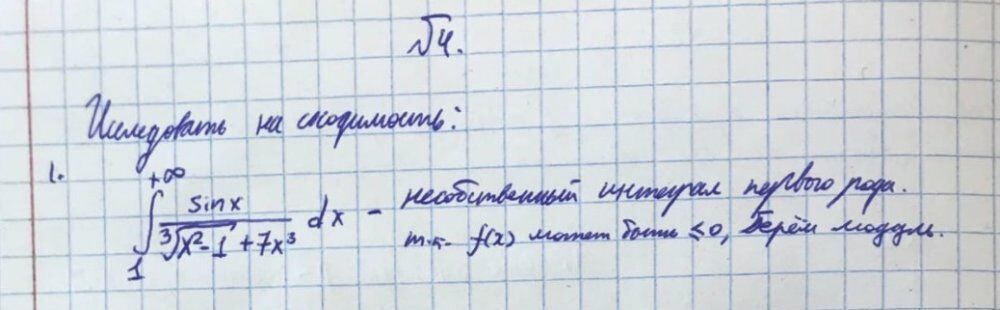 №4.
Исследовать на сходимость:
1. ∫₁^{+∞} sinx / (∛(x²-1) + 7x³) dx – несобственный интеграл первого рода.
т.к. f(x) может быть ≤0, берём модуль.